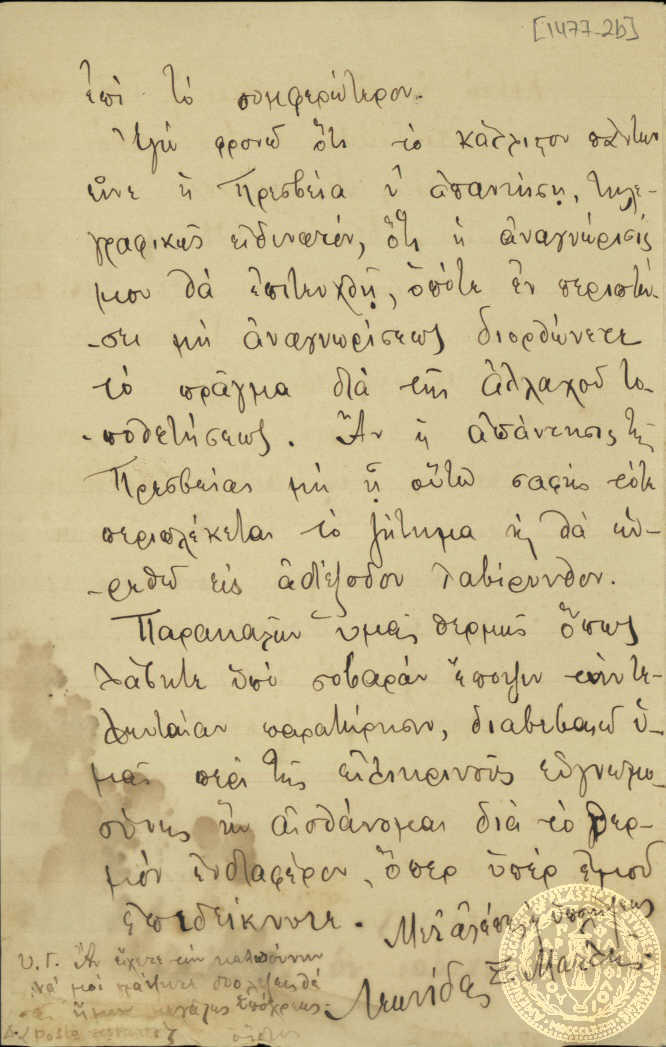 [1477-2b]
ἐπὶ τὸ συμφερώτερον.
Ἐγὼ φρονῶ ὅτι τὸ κάλλιστον πάντων
εἶνε ἡ Πρεσβεία ν' ἀπαντήσῃ, τηλε-
γραφικῶς εἰ δυνατόν, ὅτι ἡ ἀναγνώρισίς
μου θὰ ἐπιτευχθῇ, ὁπότε ἐν περιπτώ-
-σει μὴ ἀναγνωρίσεως διορθώνετε
τὸ πρᾶγμα διὰ τῆς ἀλλαχοῦ το-
-ποθετήσεως. Ἂν ἡ ἀπάντησις τῆς
Πρεσβείας μὴ ᾖ οὕτω σαφὴς τότε
περιπλέκεται τὸ ζήτημα κ θὰ εὑ-
-ρεθῶ εἰς ἀδιέξοδον λαβίρυνθον.
Παρακαλῶν ὑμᾶς θερμῶς ὅπως
λάβητε ὑπὸ σοβαρὰν ἔποψιν τὴν τε-
λευταίαν παρατήρησιν, διαβεβαιῶ ὑ-
μᾶς περὶ τῆς εἰλικρινοῦς εὐγνωμο-
σύνης ἣν αἰσθάνομαι διὰ τὸ θερ-
μὸν ἐνδιαφέρον, ὅπερ ὑπὲρ ἐμοῦ
ἐπεδείκνυτε. Μετ' ἀγάπης κ ὑπολήψεως
Λεωνίδας Ξ. Ματλῆς.
Υ.Γ. Ἂν ἔχετε τὴν καλωσύνην
νά μοι γράψητε δύο λέξεις θὰ
σᾶς ἤμην μεγάλως ὑπόχρεως.